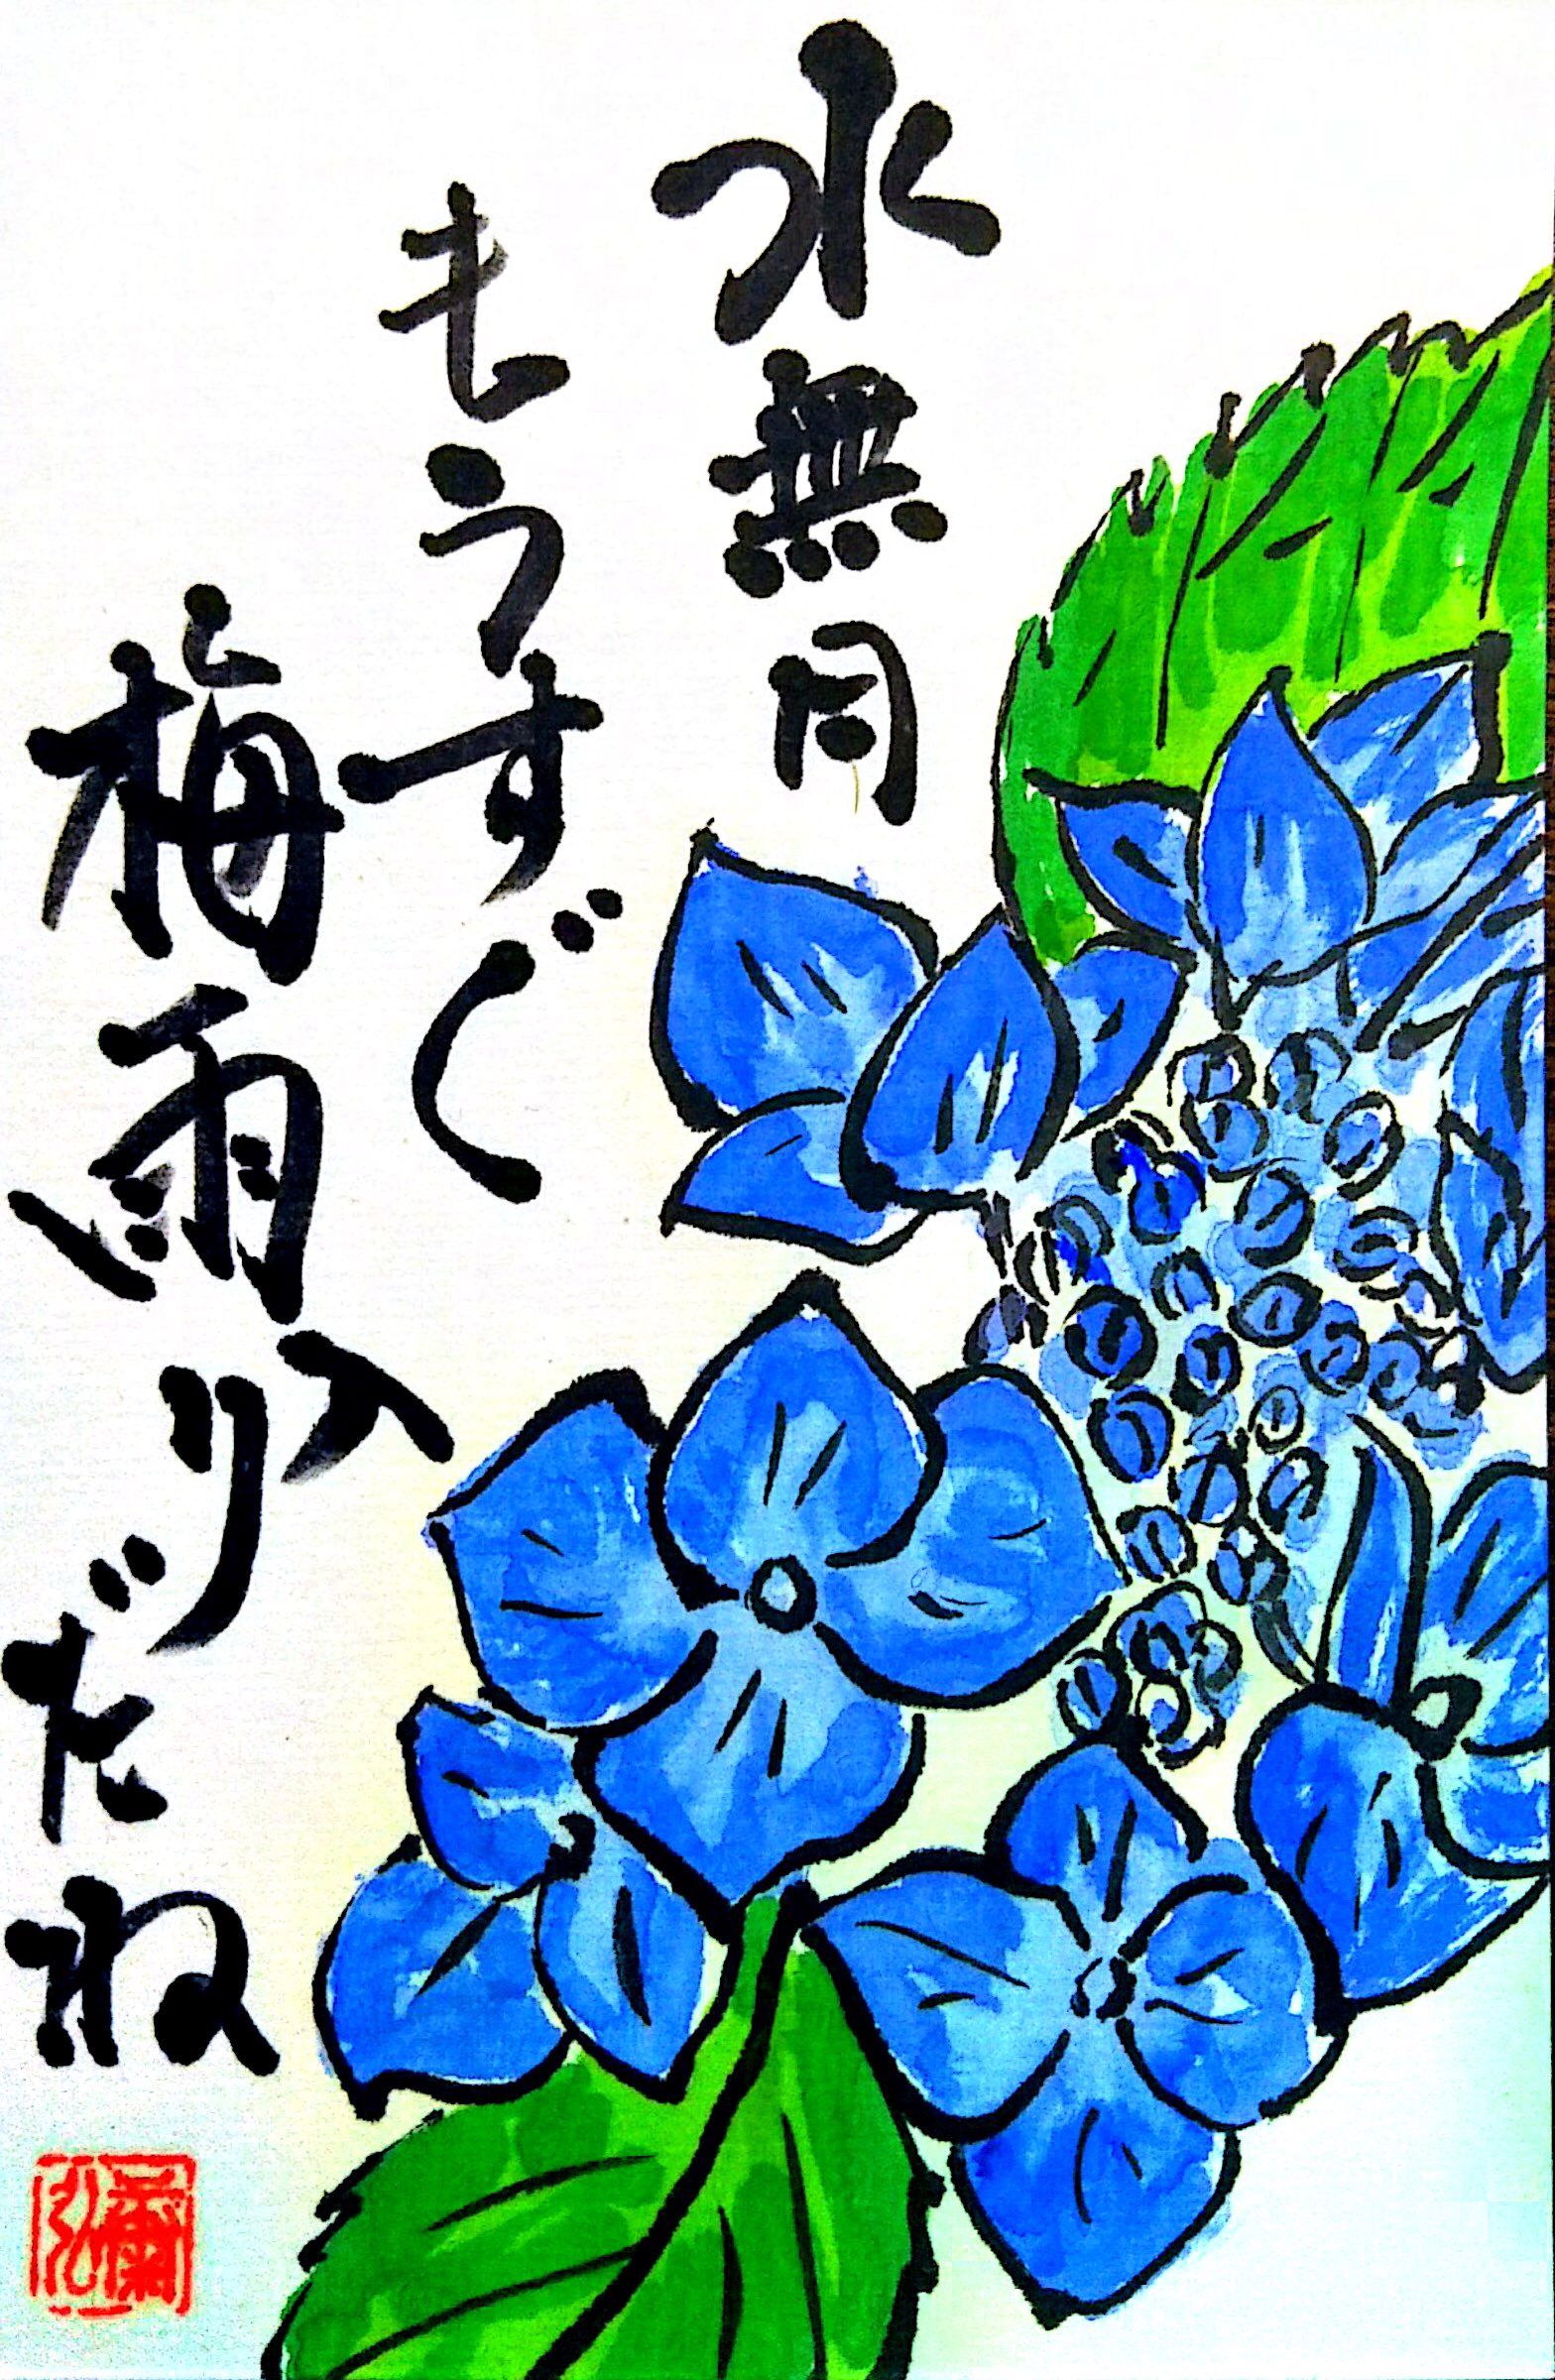 水無月
もうすぐ
梅雨入りだね